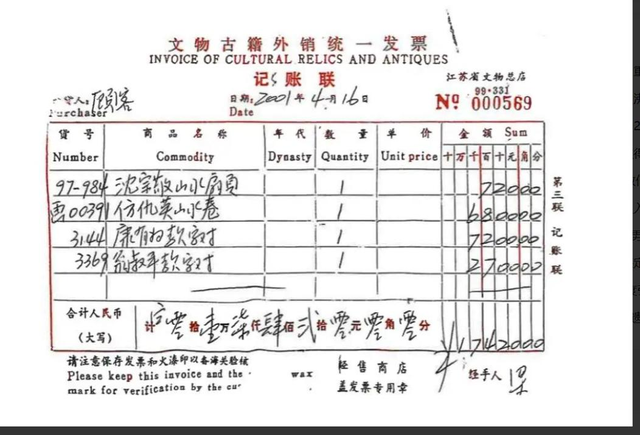 文物古籍外销统一发票
INVOICE OF CULTURAL RELICS AND ANTIQUES
记账联
江苏省文物总店
99·331
货人: 顾客 日期: 2001年4月16日 № 000569
Purchaser Date
货号 商品名称 年代 数量 单价 金额 Sum
Number Commodity Dynasty Quantity Unit price 十万千百十元角分
97-984 沈宗敬山水扇页 1 72000
00391 仿仇英山水卷 1 680000
3144 康有为款字对 1 720000
3369 翁叔平款字对 1 270000
第三联 记账联
合计人民币
(大写) 计 零拾壹万柒仟肆佰贰拾零元零角零分 ¥1742000
请注意保存发票和火漆印以备海关验核 经售商店 经手人 梁
Please keep this invoice and the wax 盖发票专用章
mark for verification by the cu